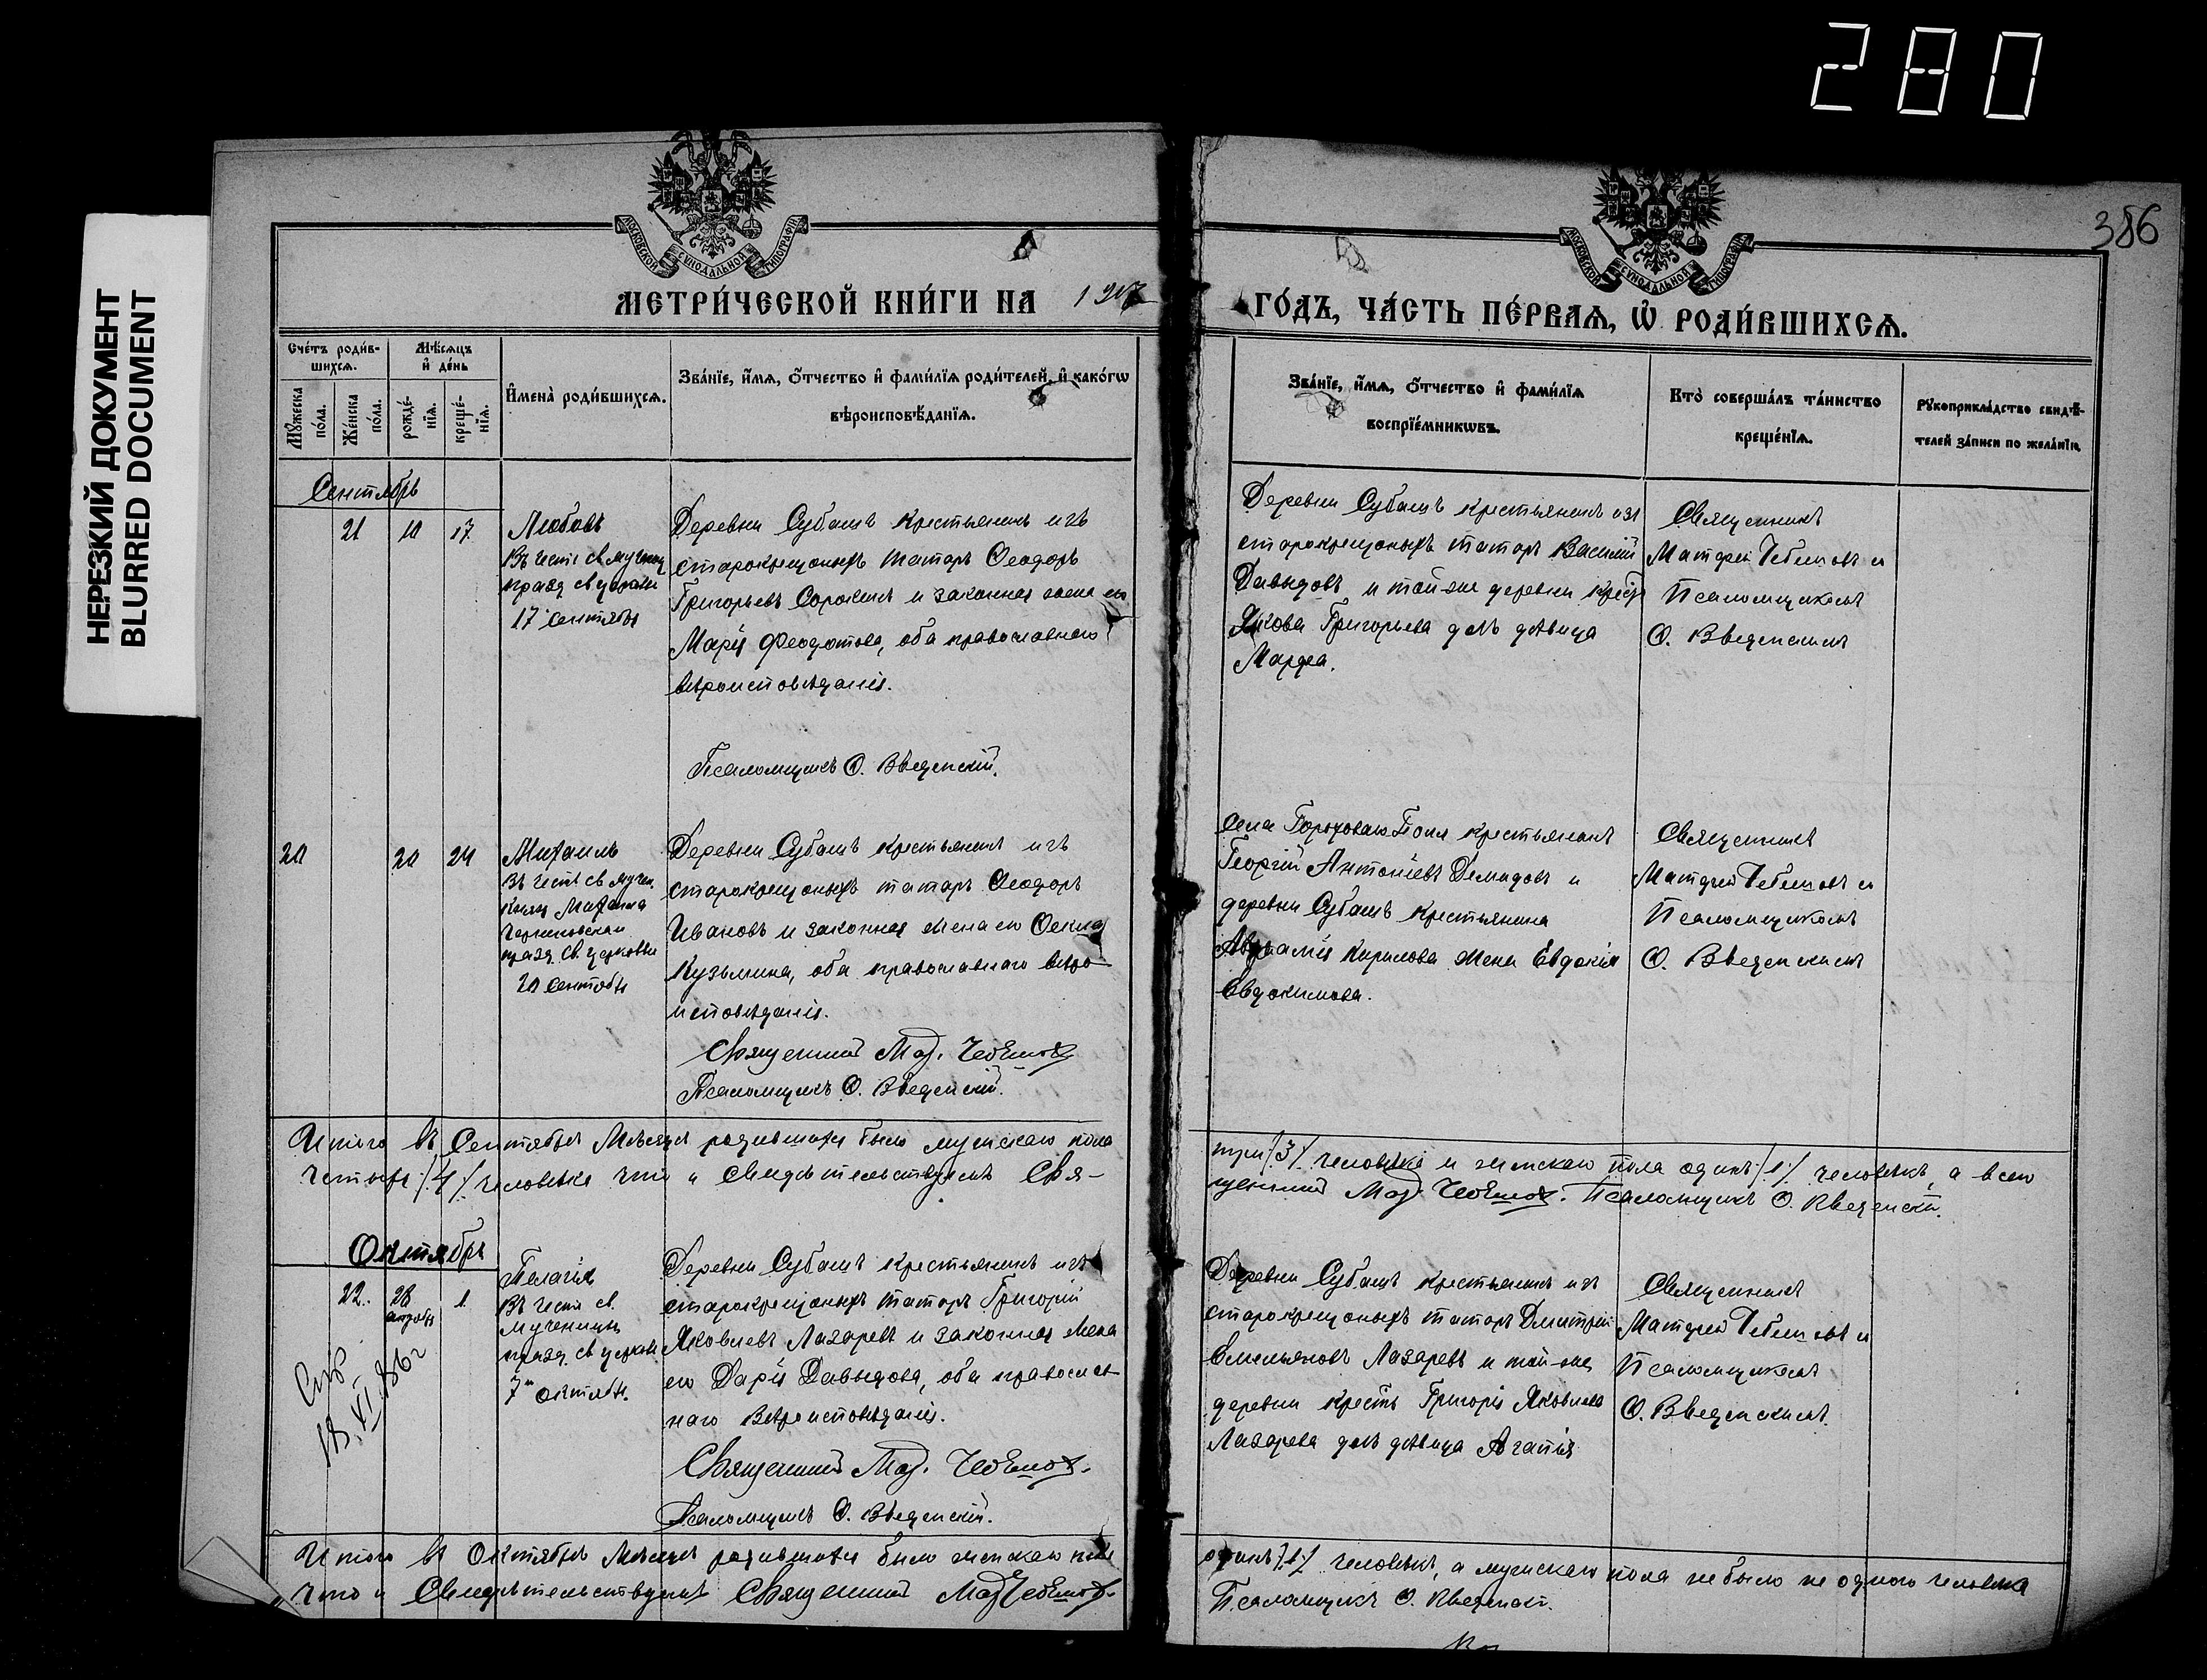 280
НЕРЕЗКИЙ ДОКУМЕНТ
BLURRED DOCUMENT
386
МОСКОВСКОЙ СѴНОДАЛЬНОЙ ТИПОГРАФІИ
МОСКОВСКОЙ СѴНОДАЛЬНОЙ ТИПОГРАФІИ
МЕТРИ́ЧЕСКОЙ КНИ́ГИ НА
ГО́ДЪ, ЧА́СТЬ ПЕ́РВАЯ, Ѡ҆ РОДИ́ВШИХСЯ.
Сче́тъ роди́в-
шихся.
Мѣ́сяцъ
и҆ де́нь
Мꙋ́жеска
по́ла.
Же́нска
по́ла.
рожде́-
нїя.
креще́-
нїя.
И҆мена̀ роди́вшихся.
Зва́нїе, и҆́мя, ѻ҆́тчество и҆ фами́лїя роди́телей, и҆ како́гѡ
вѣроисповѣ́данїя.
Зва́нїе, и҆́мя, ѻ҆́тчество и҆ фами́лїя
воспрїе́мникѡвъ.
Кто̀ соверша́лъ та́инство
креще́нїя.
Рꙋкоприкла́дство свидѣ́-
телей за́писи по жела́нїю.
Сентябрь
21 10 17
Любовь
Въ честь св. мучен.
празд. св. церковью
17 сентября
Деревни Субашъ крестьянинъ изъ
старокрещоныхъ татаръ Ѳеодоръ
Григорьевъ Сорокинъ и законная жена его
Марія Феодотова, оба православнаго
вѣроисповѣданія.
Псаломщикъ Ѳ. Введенскій.
Деревни Субашъ крестьянинъ изъ
старокрещоныхъ татаръ Василій
Давыдовъ и той-же деревни крест.
Якова Григорьева дочь дѣвица
Марѳа.
Священникъ
Матфей Чебышовъ и
Псаломщикомъ
Ѳ. Введенскимъ
20 20 24
Михаилъ
Въ честь св. мучен.
князя Михаила
Черниговскаго
празд. св. церковью
20 сентября
Деревни Субашъ крестьянинъ изъ
старокрещоныхъ татаръ Ѳеодоръ
Ивановъ и законная жена его
Кузьмина, оба православнаго вѣро-
исповѣданія.
Священникъ Матѳ.
Псаломщикъ Ѳ. Введенскій.
Села Горохового Поля крестьянинъ
Георгій Антоніевъ Демидовъ и
деревни Субашъ крестьянина
Авраамія Кирилова жена Евдокія
Евдокимова.
Священникъ
Матфей Чебышовъ и
Псаломщикомъ
Ѳ. Введенскимъ
Итого въ Сентябрѣ Мѣсяцѣ родившихся было мужскаго пола
три /3/ человѣка и женскаго пола одинъ /1/ человѣкъ, а всего
четыре /4/ человѣка что и свидѣтельствуемъ Свя-
щенникъ Матѳ. Псаломщикъ Ѳ. Введенскій.
Октябрь
22. 28 1.
Пелагія
Въ честь св.
Мученицы
празд. св. церковью
7го октября.
Деревни Субашъ крестьянинъ изъ
старокрещоныхъ татаръ Григорій
Яковлевъ Лазаревъ и законная жена
его Дарія Давыдова, оба православ-
наго вѣроисповѣданія.
Священникъ Матѳ.
Псаломщикъ Ѳ. Введенскій.
Деревни Субашъ крестьянинъ изъ
старокрещоныхъ татаръ Дмитрій
Емельяновъ Лазаревъ и той-же
деревни крестъ. Григорія Яковлева
Лазарева дочь дѣвица Агапія
Священникъ
Матфей Чебышовъ и
Псаломщикомъ
Ѳ. Введенскимъ.
18.XI.86 г
Итого въ Октябрѣ Мѣсяцѣ родившихся было женскаго пола
одинъ /1/ человѣкъ, а мужскаго пола не было не одного человѣка
что и Свидѣтельствуемъ Священникъ Матѳ.
Псаломщикъ Ѳ. Введенскій.